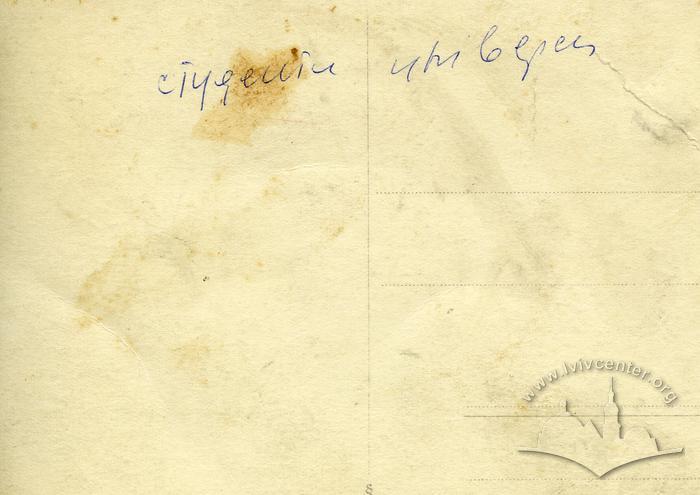 студенти універси
www.lvivcenter.org